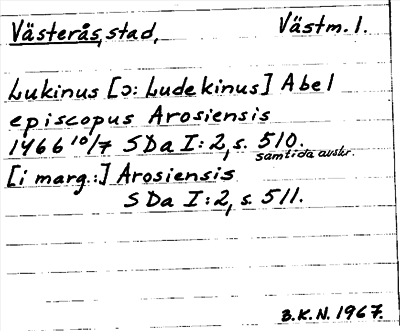 Västerås, stad, Västm. l.
Lukinus [ɔ: Ludekinus] Abel
episcopus Arosiensis
1466 10/7 SDa I:2, s. 510.
samtida avskr.
[i marg.:] Arosiensis
SDa I:2, s. 511.
B.K.N. 1967.